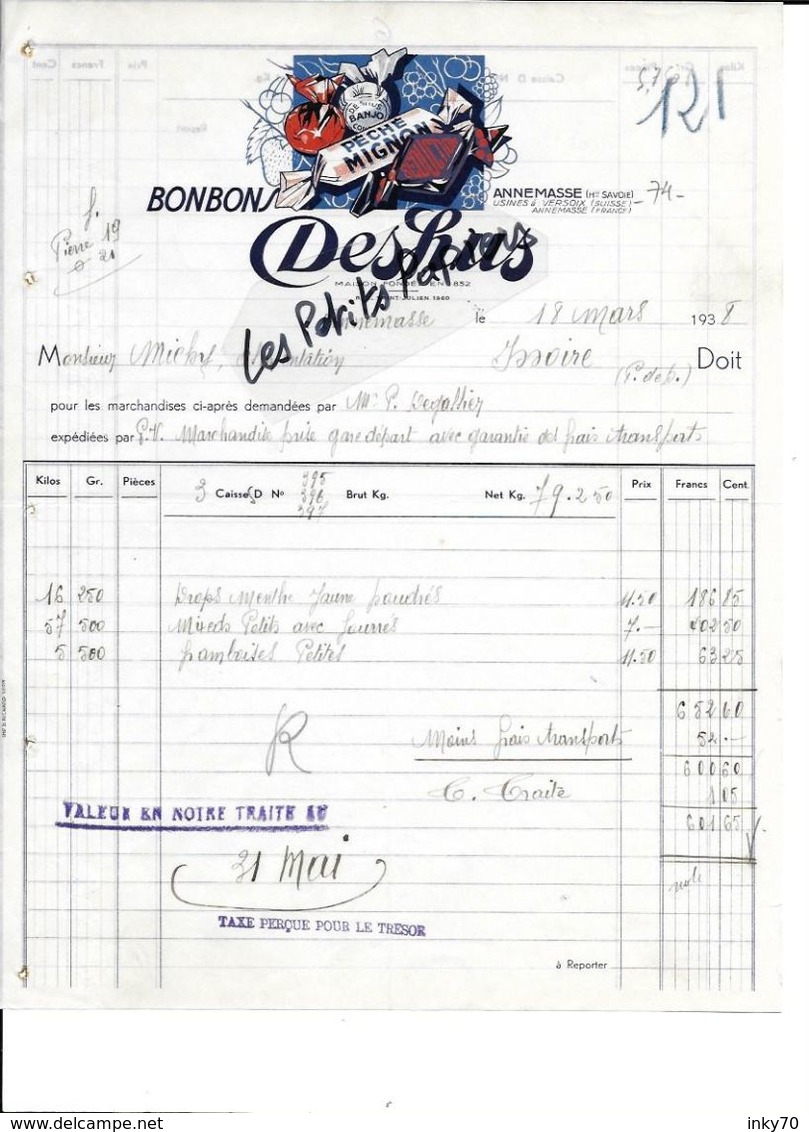 121
DESHUSSES
BANJO
PÉCHÉ
MIGNON
BONBONS
ANNEMASSE (HTE SAVOIE) -74-
USINES à VERSOIX (SUISSE)
ANNEMASSE (FRANCE)
Deshus
MAISON FONDÉE EN 1852
Pierre 19
21
Les Petits Papiers
Annemasse le 18 mars 1938
Monsieur Michy, Issoire Doit
(P. de D.)
pour les marchandises ci-après demandées par Mr P. Degallier
expédiées par P.V. Marchandise prise gare départ avec garantie des frais transports
Kilos Gr. Pièces 3 Caisses D No 395 Brut Kg. Net Kg. 79.250 Prix Francs Cent.
396
397
16 250 Drops Menthe Jaune poudrés 11.50 186 85
57 500 Mixeds Petits avec fourrés 7.— 402 50
5 500 framboises Petites 11.50 63 25
652 60
Moins frais transports 52.—
600 60
T. Traite 1 05
601 65
VALEUR EN NOTRE TRAITE AU
31 Mai
TAXE PERÇUE POUR LE TRESOR
à Reporter
inky70